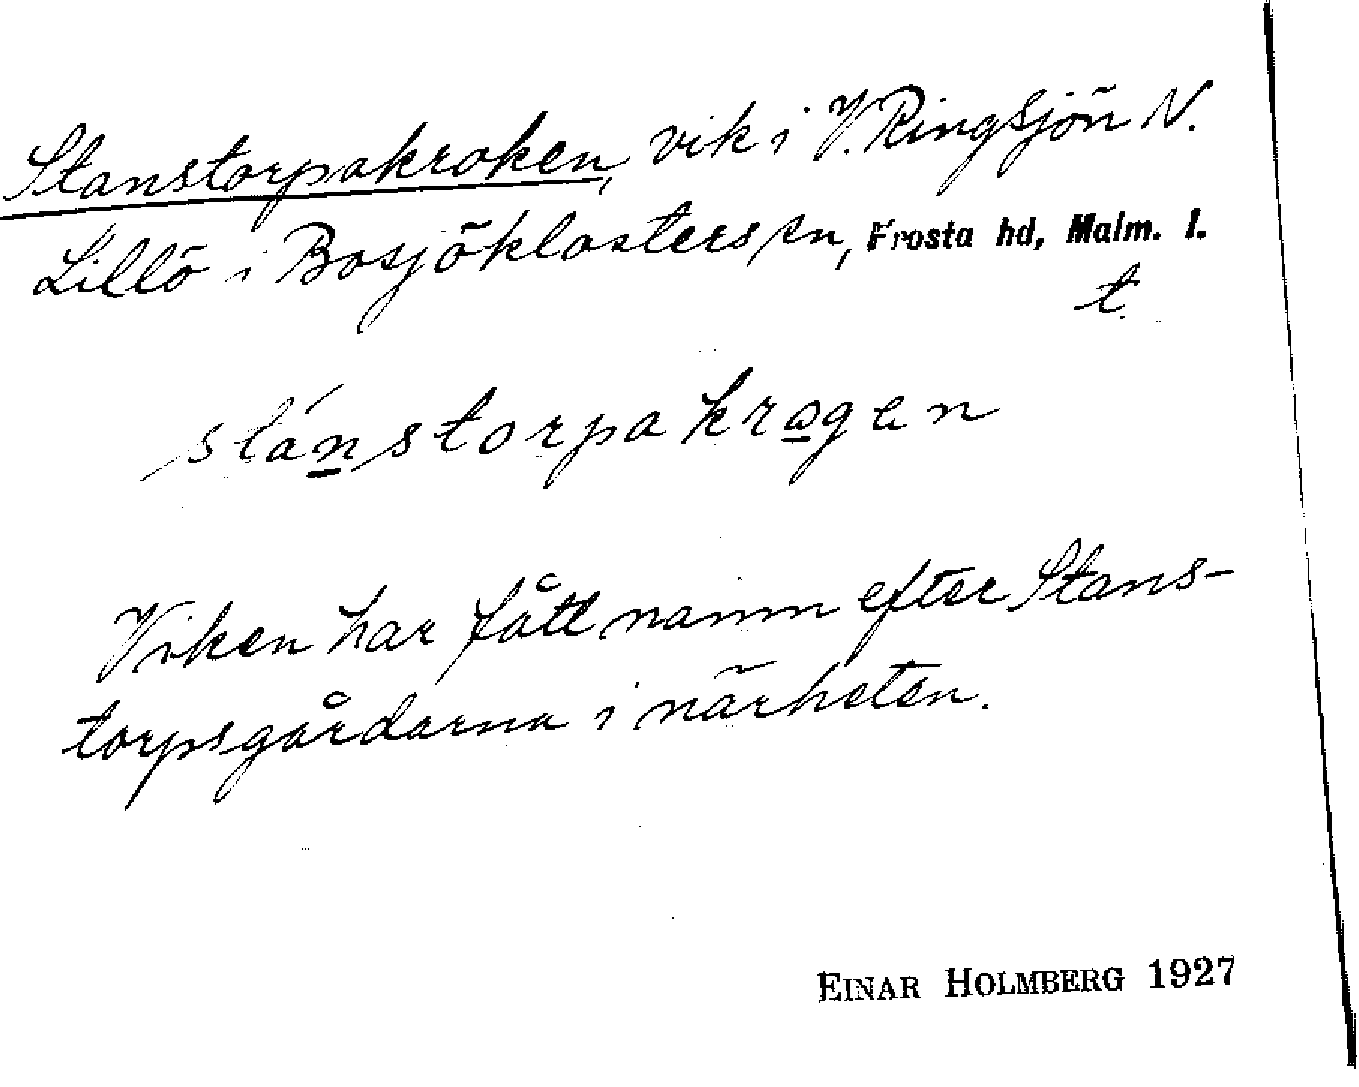 Stanstorpakroken, vik i V. Ringsjön N.
Lillö i Bosjöklosters sn, Frosta hd, Malm. l.
t.
stánstorpakrogen
Viken har fått namn efter Stans-
torpsgårdarna i närheten.
EINAR HOLMBERG 1927